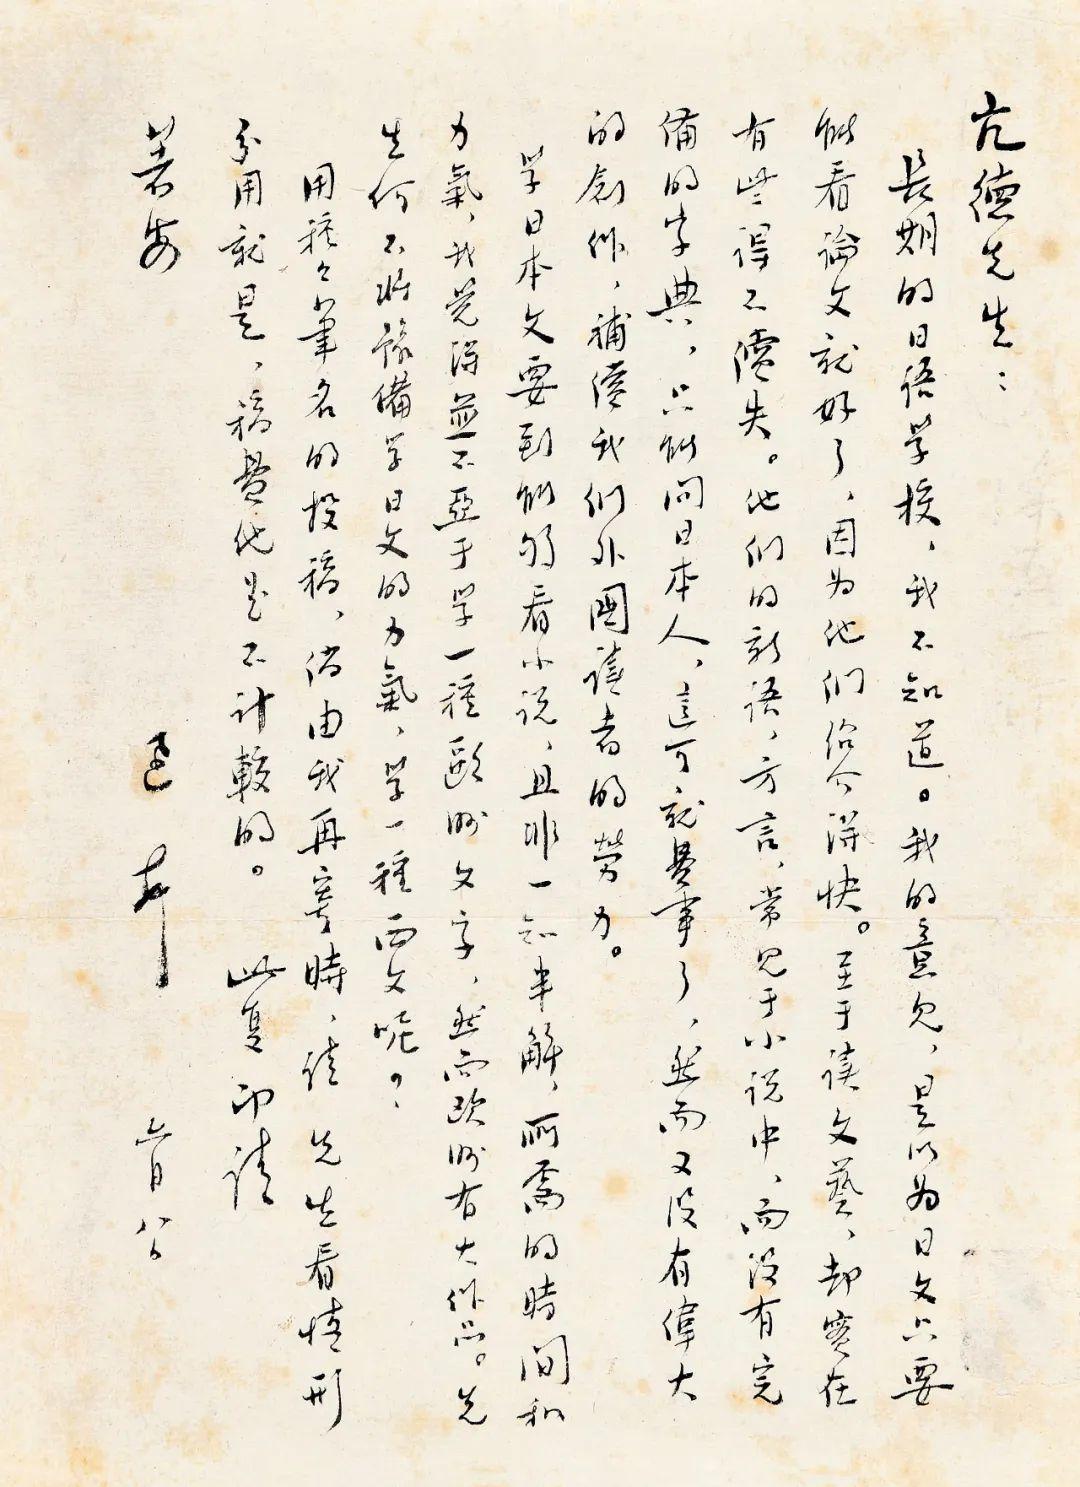 亢德先生：
長期的日语学校，我不知道。我的意見，是以为日文只要
能看論文就好了，因为他们绍介得快。至于读文藝，却实在
有些得不償失。他们的新语，方言，常见于小说中，而没有完
備的字典，只能问日本人，這可就費事了，然而又没有偉大
的創作，補償我们外國读者的勞力。
学日本文要到能够看小说，且非一知半解，所需的時间和
力氣，我觉得並不亞于学一種歐洲文字，然而欧洲有大作品。先
生何不将豫備学日文的力氣，学一種西文呢？
用種々筆名的投稿，倘由我再寄時，请 先生看情形
分用就是，稿费他是不計較的。 此复 即请
著安
迅 上 六月八日